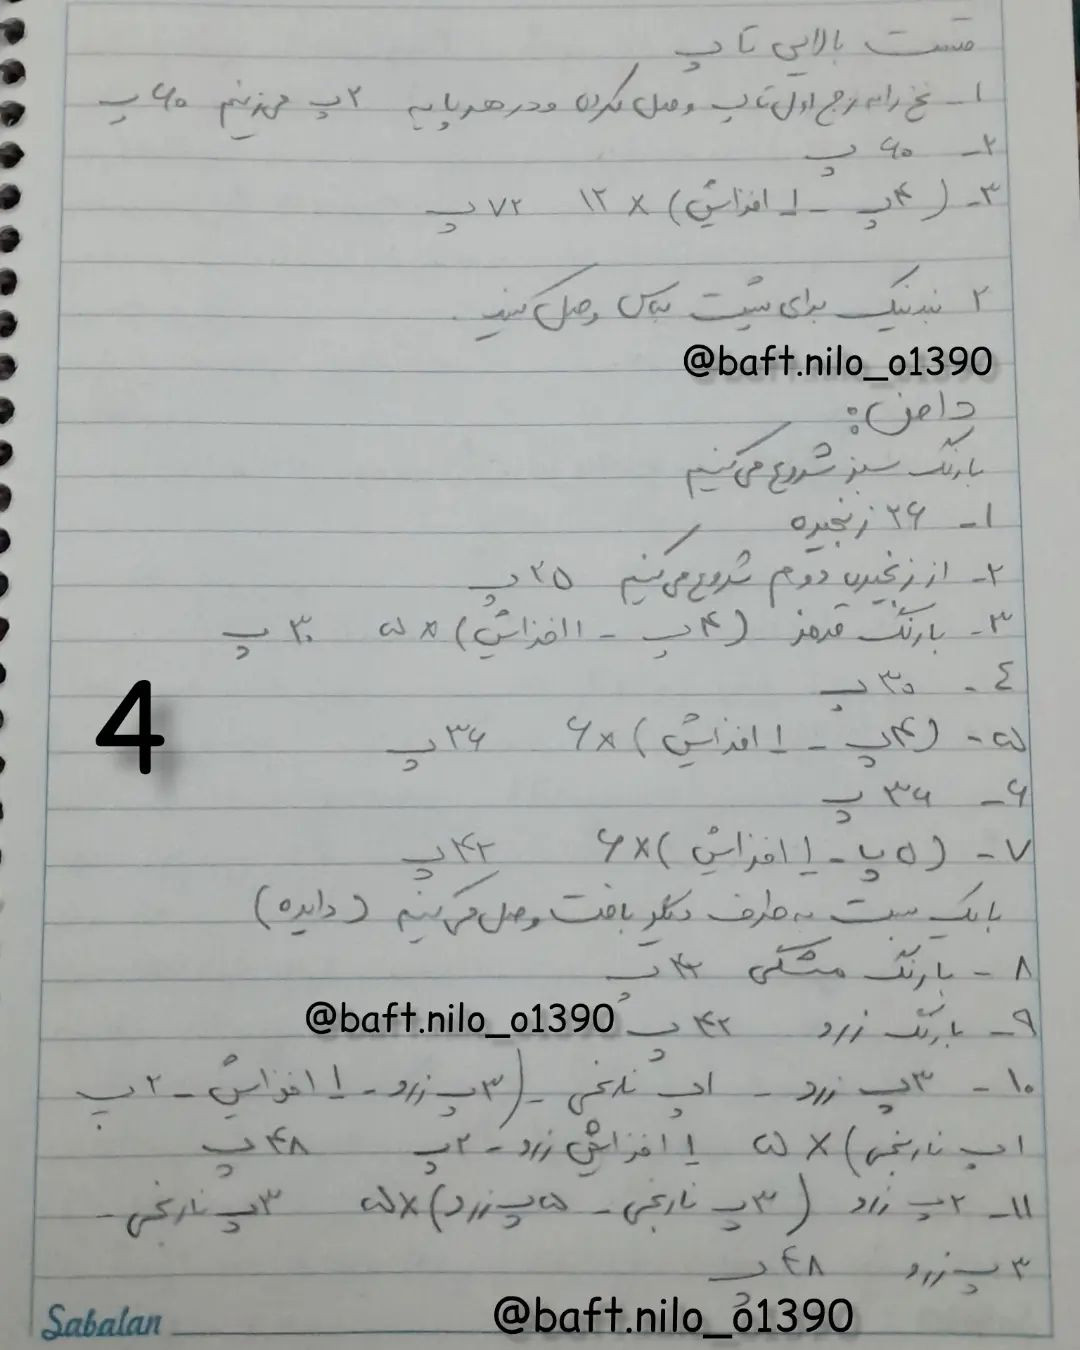 قسمت بالایی تاپ
۱_ نخ را به رج اول تاپ وصل کرده و در هر پایه ۲پ می‌زنیم ۶۰پ
۲_ ۶۰ پ
۳_ (۴پ _ ۱ افزایش) × ۱۲ ۷۲پ
۲ بندینک برای پشت لباس وصل کنید.
@baft.nilo_o1390
دامن:
با رنگ سبز شروع می‌کنیم
۱_ ۲۶ زنجیره
۲_ از زنجیره دوم شروع می‌کنیم ۲۵ پ
۳_ با رنگ قرمز (۴پ _ ۱ افزایش) × ۵ ۳۰ پ
٤_ ۳۰ پ
4
۵_ (۴پ _ ۱ افزایش) × ۶ ۳۶ پ
۶_ ۳۶ پ
۷_ (۵پ _ ۱ افزایش) × ۶ ۴۲ پ
با یک بست به طرف دیگر بافت وصل می‌کنیم (دایره)
۸_ با رنگ مشکی ۴۲ پ
۹_ با رنگ زرد ۴۲ پ @baft.nilo_o1390
۱۰_ ۳پ زرد _ ۱پ نارنجی _ (۳پ زرد _ ۱ افزایش _ ۲پ
۱پ نارنجی) × ۵ ۱ افزایش زرد _ ۲پ ۴۸ پ
۱۱_ ۲پ زرد (۳پ نارنجی _ ۵پ زرد) × ۵ ۳پ نارنجی _
۳ پ زرد ٤۸ پ
Sabalan @baft.nilo_o1390